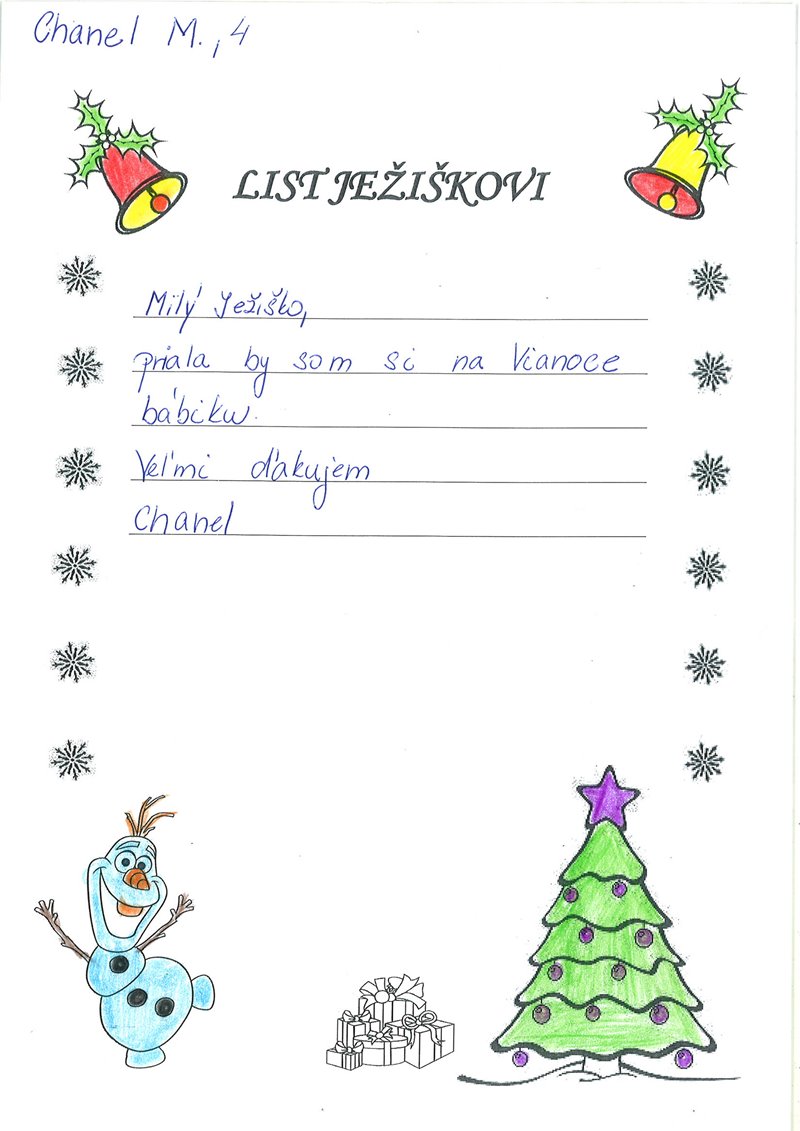 Chanel M., 4
LIST JEŽIŠKOVI
Milý Ježiško,
priala by som si na Vianoce
bábiku.
Veľmi ďakujem
Chanel